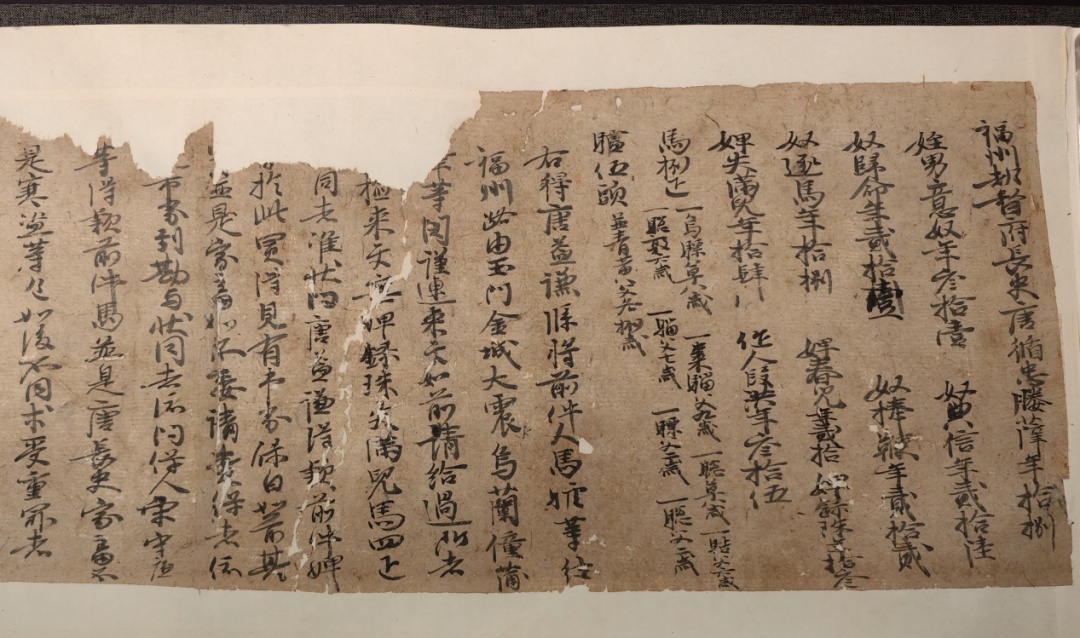 福州都督府長史唐循忠媵薛年拾捌
姪男意奴年叁拾壹 奴典信年貳拾陸
奴歸命年貳拾壹 奴捧鞭年貳拾貳
奴逐馬年拾捌 婢春兒年貳拾 婢錄珠年拾叁
婢失滿兒年拾肆 作人段洪年叁拾伍
馬捌疋 一烏騍草八歲 一棗騮父六歲 一驄草八歲
一驄敦六歲 一騮父七歲 一騍父二歲 一驄父二歲
驢伍頭 並青黃父各捌歲
右得唐益謙牒將前件人馬驢等往
福州路由玉門金城大震烏蘭僮蒲
等關謹連來文如前請給過所者
檢來文無婢錄珠失滿兒馬四疋
同者准狀問唐益謙得款前件婢
於此買得見有市券保白如前其
並是家畜如不委請責保者依
市券到勘與狀同者依問保人宋守廉
等得款前件馬並是唐長史家畜不
是寒盜等色如後不同求受重罪者